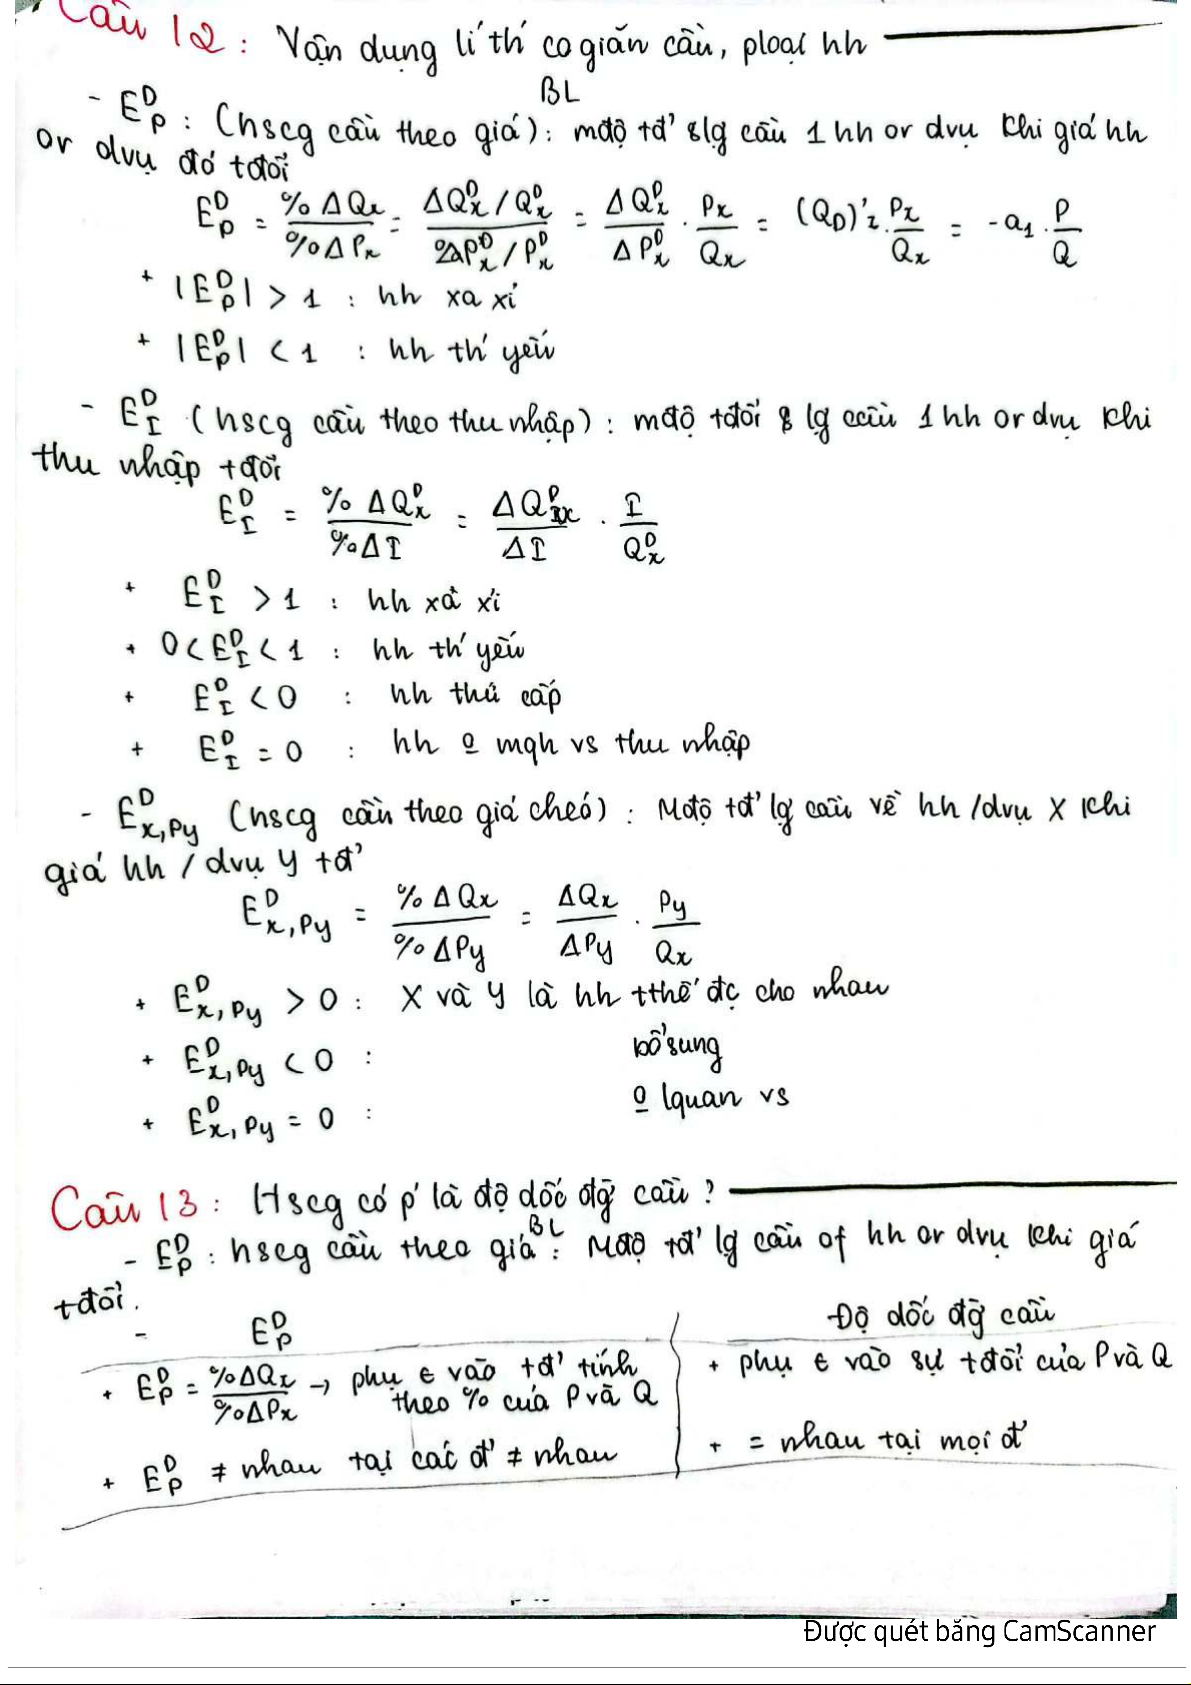 Câu 12 : Vận dụng lí th' co giãn cầu, ploại hh
BL
- E^D_P : (hscg cầu theo giá) : mđộ tđ' slg cầu 1 hh or dvụ khi giá hh
or dvụ đó tđổi
E^D_P = %ΔQx / %ΔPx = (ΔQ^D_x / Q^D_x) / (%ΔP^D_x / P^D_x) = ΔQ^D_x / ΔP^D_x . Px / Qx = (Q_D)' . Px / Qx = -a1 . P / Q
+ |E^D_P| > 1 : hh xa xỉ
+ |E^D_P| < 1 : hh th' yếu
- E^D_I (hscg cầu theo thu nhập) : mđộ tđổi lg cầu 1 hh or dvụ khi
thu nhập tđổi
E^D_I = %ΔQ^D_x / %ΔI = ΔQ^D_x / ΔI . I / Q^D_x
+ E^D_I > 1 : hh xa xỉ
+ 0 < E^D_I < 1 : hh th' yếu
+ E^D_I < 0 : hh thứ cấp
+ E^D_I = 0 : hh o mqh vs thu nhập
- E^D_x,Py (hscg cầu theo giá chéo) : Mđộ tđ' lg cầu về hh /dvụ X khi
giá hh / dvụ Y tđ'
E^D_x,Py = %ΔQx / %ΔPy = ΔQx / ΔPy . Py / Qx
+ E^D_x,Py > 0 : X và Y là hh tthế đc cho nhau
+ E^D_x,Py < 0 : bổ sung
+ E^D_x,Py = 0 : o lquan vs
Câu 13 : Hscg có p' là độ dốc đg cầu ?
BL
- E^D_P : hscg cầu theo giá : Mđộ tđ' lg cầu of hh or dvụ khi giá
tđổi.
- E^D_P
Độ dốc đg cầu
+ E^D_P = %ΔQx / %ΔPx → phụ ∈ vào tđ' tính
theo % của P và Q
+ phụ ∈ vào sự tđổi của P và Q
+ E^D_P ≠ nhau tại các đ' ≠ nhau
+ = nhau tại mọi đ'
Được quét bằng CamScanner